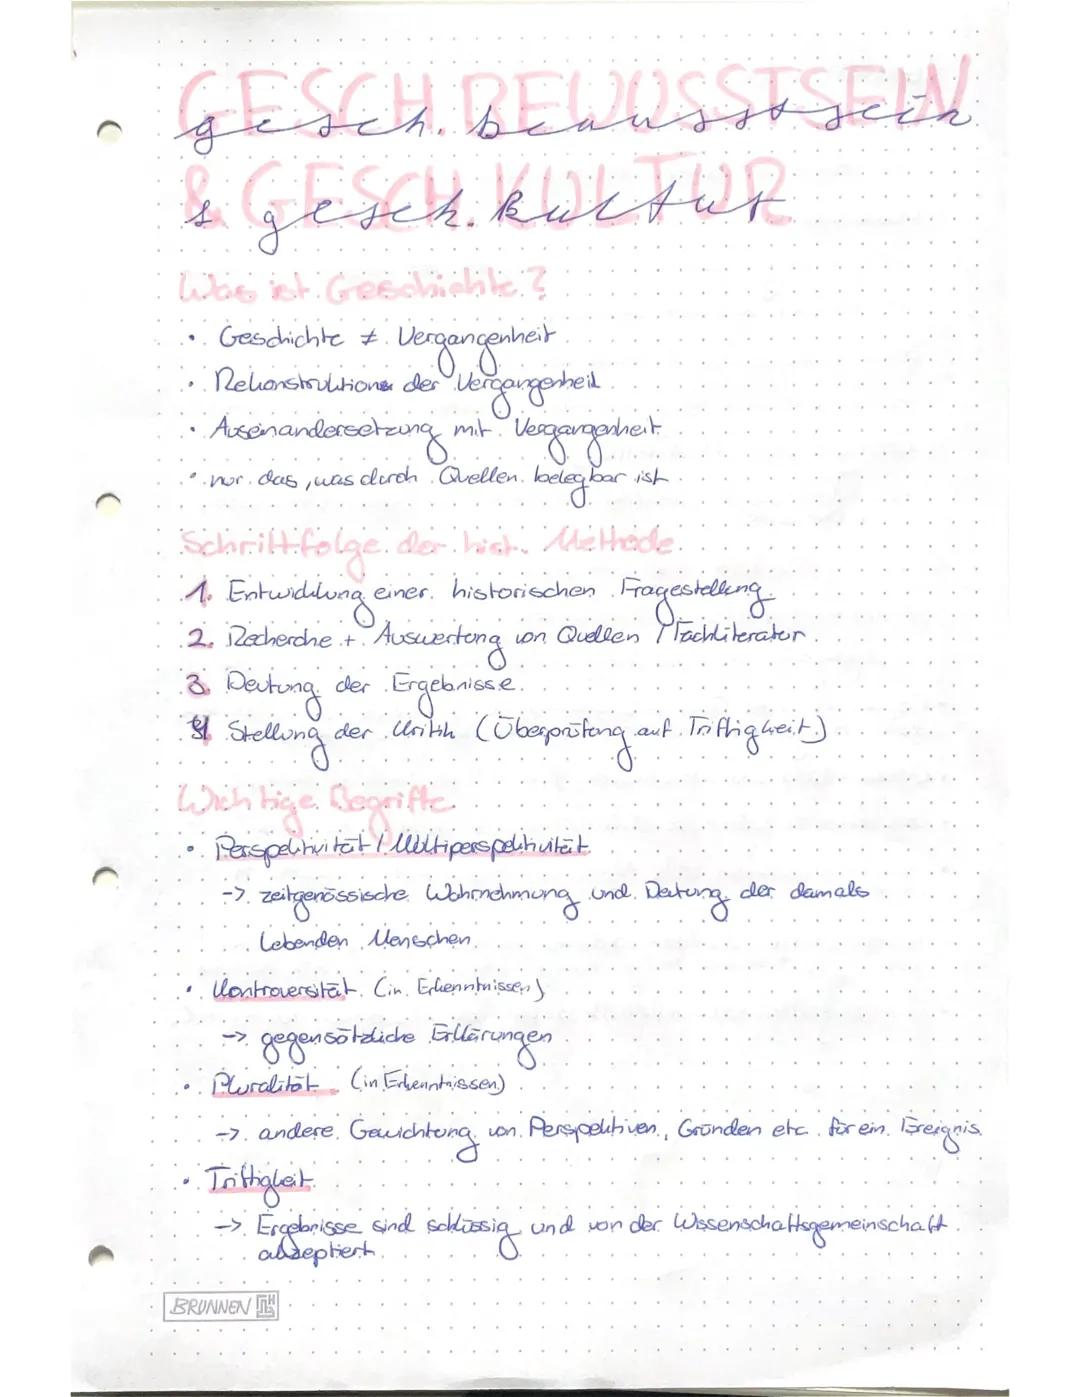 GESCH. BEWUSSTSEIN
gesch. bewusstsein
& GESCH. KULTUR
& gesch. kultur
Was ist Geschichte?
• Geschichte ≠ Vergangenheit
• Rekonstruktion der Vergangenheit
• Auseinandersetzung mit Vergangenheit
• nur das, was durch Quellen belegbar ist
Schrittfolge der hist. Methode
1. Entwicklung einer historischen Fragestellung
2. Recherche + Auswertung von Quellen / Fachliteratur
3. Deutung der Ergebnisse
4. Stellung der Kritik (Überprüfung auf Triftigkeit)
Wichtige Begriffe
• Perspektivität / Multiperspektivität
-> zeitgenössische Wahrnehmung und Deutung der damals
lebenden Menschen
• Kontroversität (in Erkenntnissen)
-> gegensätzliche Erklärungen
• Pluralität (in Erkenntnissen)
-> andere Gewichtung von Perspektiven, Gründen etc. für ein Ereignis
• Triftigkeit
-> Ergebnisse sind schlüssig und von der Wissenschaftsgemeinschaft
akzeptiert
BRUNNEN